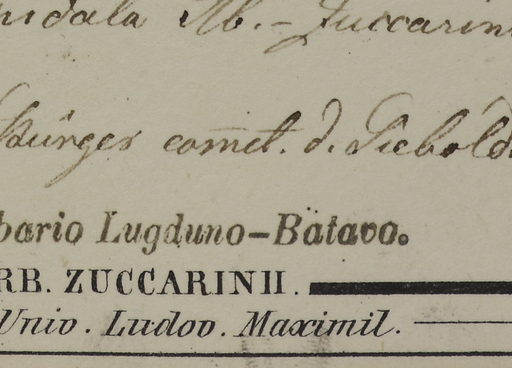 Zuccarini
Bürger comēt. d. Siebold
bario Lugduno-Batavo.
RB. ZUCCARINII.
Univ. Ludov. Maximil.